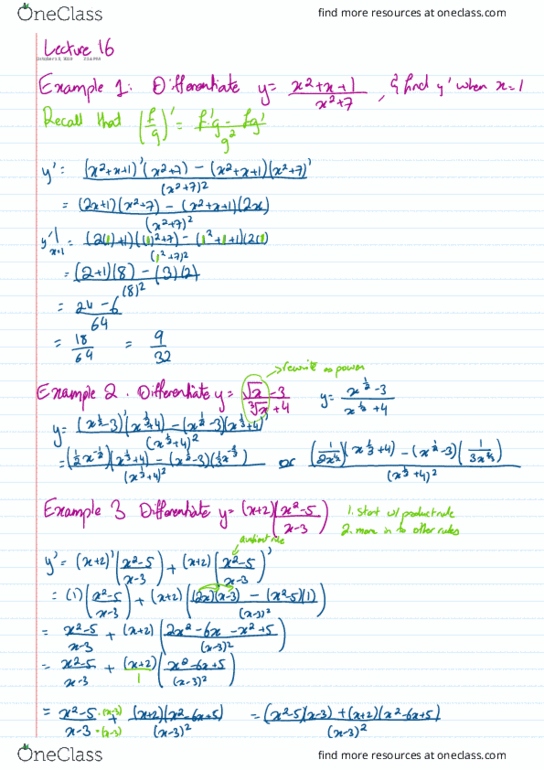 OneClass find more resources at oneclass.com
Lecture 16
Example 1: Differentiate y = (x²+x+1)/(x²+7), & find y' when x=1
Recall that (f/g)' = (f'g - fg')/g²
y' = ((x²+x+1)'(x²+7) - (x²+x+1)(x²+7)')/(x²+7)²
= ((2x+1)(x²+7) - (x²+x+1)(2x))/(x²+7)²
y'|x=1 = ((2(1)+1)((1)²+7) - (1²+1+1)(2(1))/(1²+7)²
= ((2+1)(8) - (3)(2))/(8)²
= (24-6)/64
= 18/64 = 9/32
→rewrite as power
Example 2. Differentiate y = (√x-3)/(∛x+4) y = (x^½-3)/(x^⅓+4)
y = ((x^½-3)'(x^⅓+4) - (x^½-3)(x^⅓+4)')/(x^⅓+4)²
= ((½x^-½)(x^⅓+4) - (x^½-3)(⅓x^-⅔))/(x^⅓+4)² or ((1/2x^½)(x^⅓+4) - (x^½-3)(1/3x^⅔))/(x^⅓+4)²
Example 3 Differentiate y = (x+2)((x²-5)/(x-3)) 1. start w/ product rule
2. move in to other rules
quotient rule
y' = (x+2)'((x²-5)/(x-3)) + (x+2)((x²-5)/(x-3))'
= (1)((x²-5)/(x-3)) + (x+2)(((2x)(x-3) - (x²-5)(1))/(x-3)²)
= (x²-5)/(x-3) + (x+2)((2x²-6x-x²+5)/(x-3)²)
= (x²-5)/(x-3) + (x+2)/1 ((x²-6x+5)/(x-3)²)
= (x²-5)·(x-3)/(x-3)·(x-3) + ((x+2)(x²-6x+5))/(x-3)² = ((x²-5)(x-3)+(x+2)(x²-6x+5))/(x-3)²
OneClass find more resources at oneclass.com